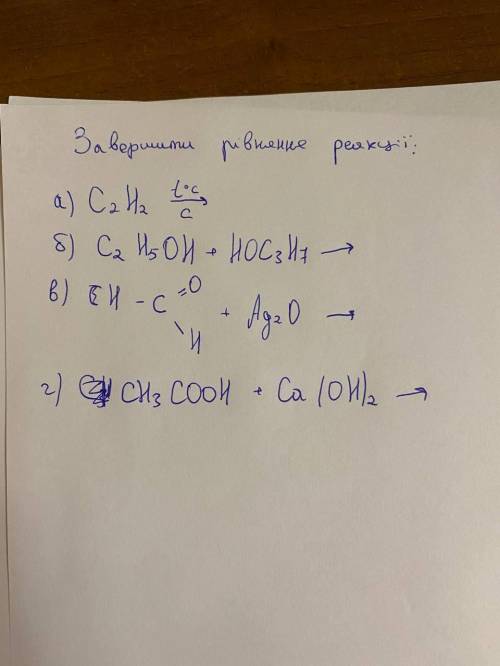 Завершити рівняння реакції:
а) C₂H₂ t°C → C
б) C₂H₅OH + HOC₃H₇ →
в) CH - C =O \ H + Ag₂O →
г) CH₃COOH + Ca(OH)₂ →